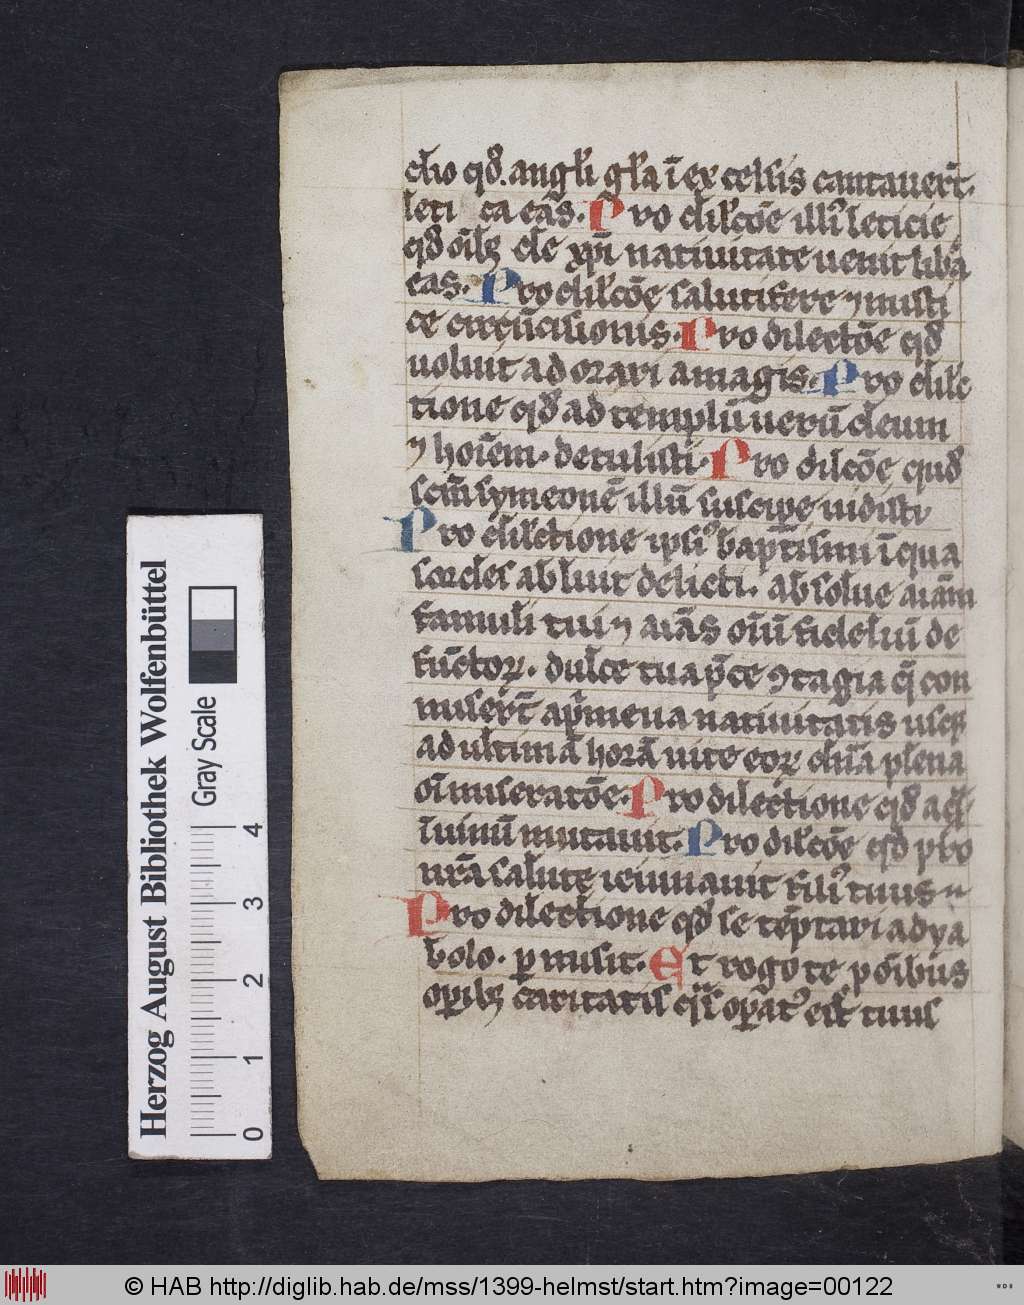 cho qđ. angl̄i gl̄a ī excelsis cantauer̄t.
leti ca eās. Pro dil̄cōe illi᷒ leticie
qđ oīb; de xp̄i natiuitate uenit lib̄a
eas. Pro dil̄cōe salutifere ⁊ misti
ce circūcisionis. Pro dilectōe qđ
uoluit adorari a magis. Pro dil̄c
tione qđ ad templū uerū deum
⁊ hoīem. detulisti. Pro dil̄cōe quid
sc̄m symeonē illū suscipe uidisti
Pro dil̄ctione ipsi᷒ bap̄tismi ī qua
sordes abluit delicti. absolue aīam
famuli tui ⁊ aīas oīū fideliū de
fūctoꝝ. dulce tua p̄ce ꝯtagia q̄ con
miser̄t a p̄meua natiuitatis usqꝫ
ad ultimā horā uite eoꝝ cl̄ia plena
oī miseratōe. Pro dilectione qđ aq̄
ī uinū mutauit. Pro dil̄cōe qđ pro
nr̄a salute ieiunauit fili᷒ tuus
Pro dilectione qđ se tēptari a dya
bolo. ꝑmisit. Et rogo te ꝑ oībus
oꝑib; caritatis q̄s oꝑat᷒ est tuus
Herzog August Bibliothek Wolfenbüttel
Gray Scale
0 1 2 3 4
© HAB http://diglib.hab.de/mss/1399-helmst/start.htm?image=00122